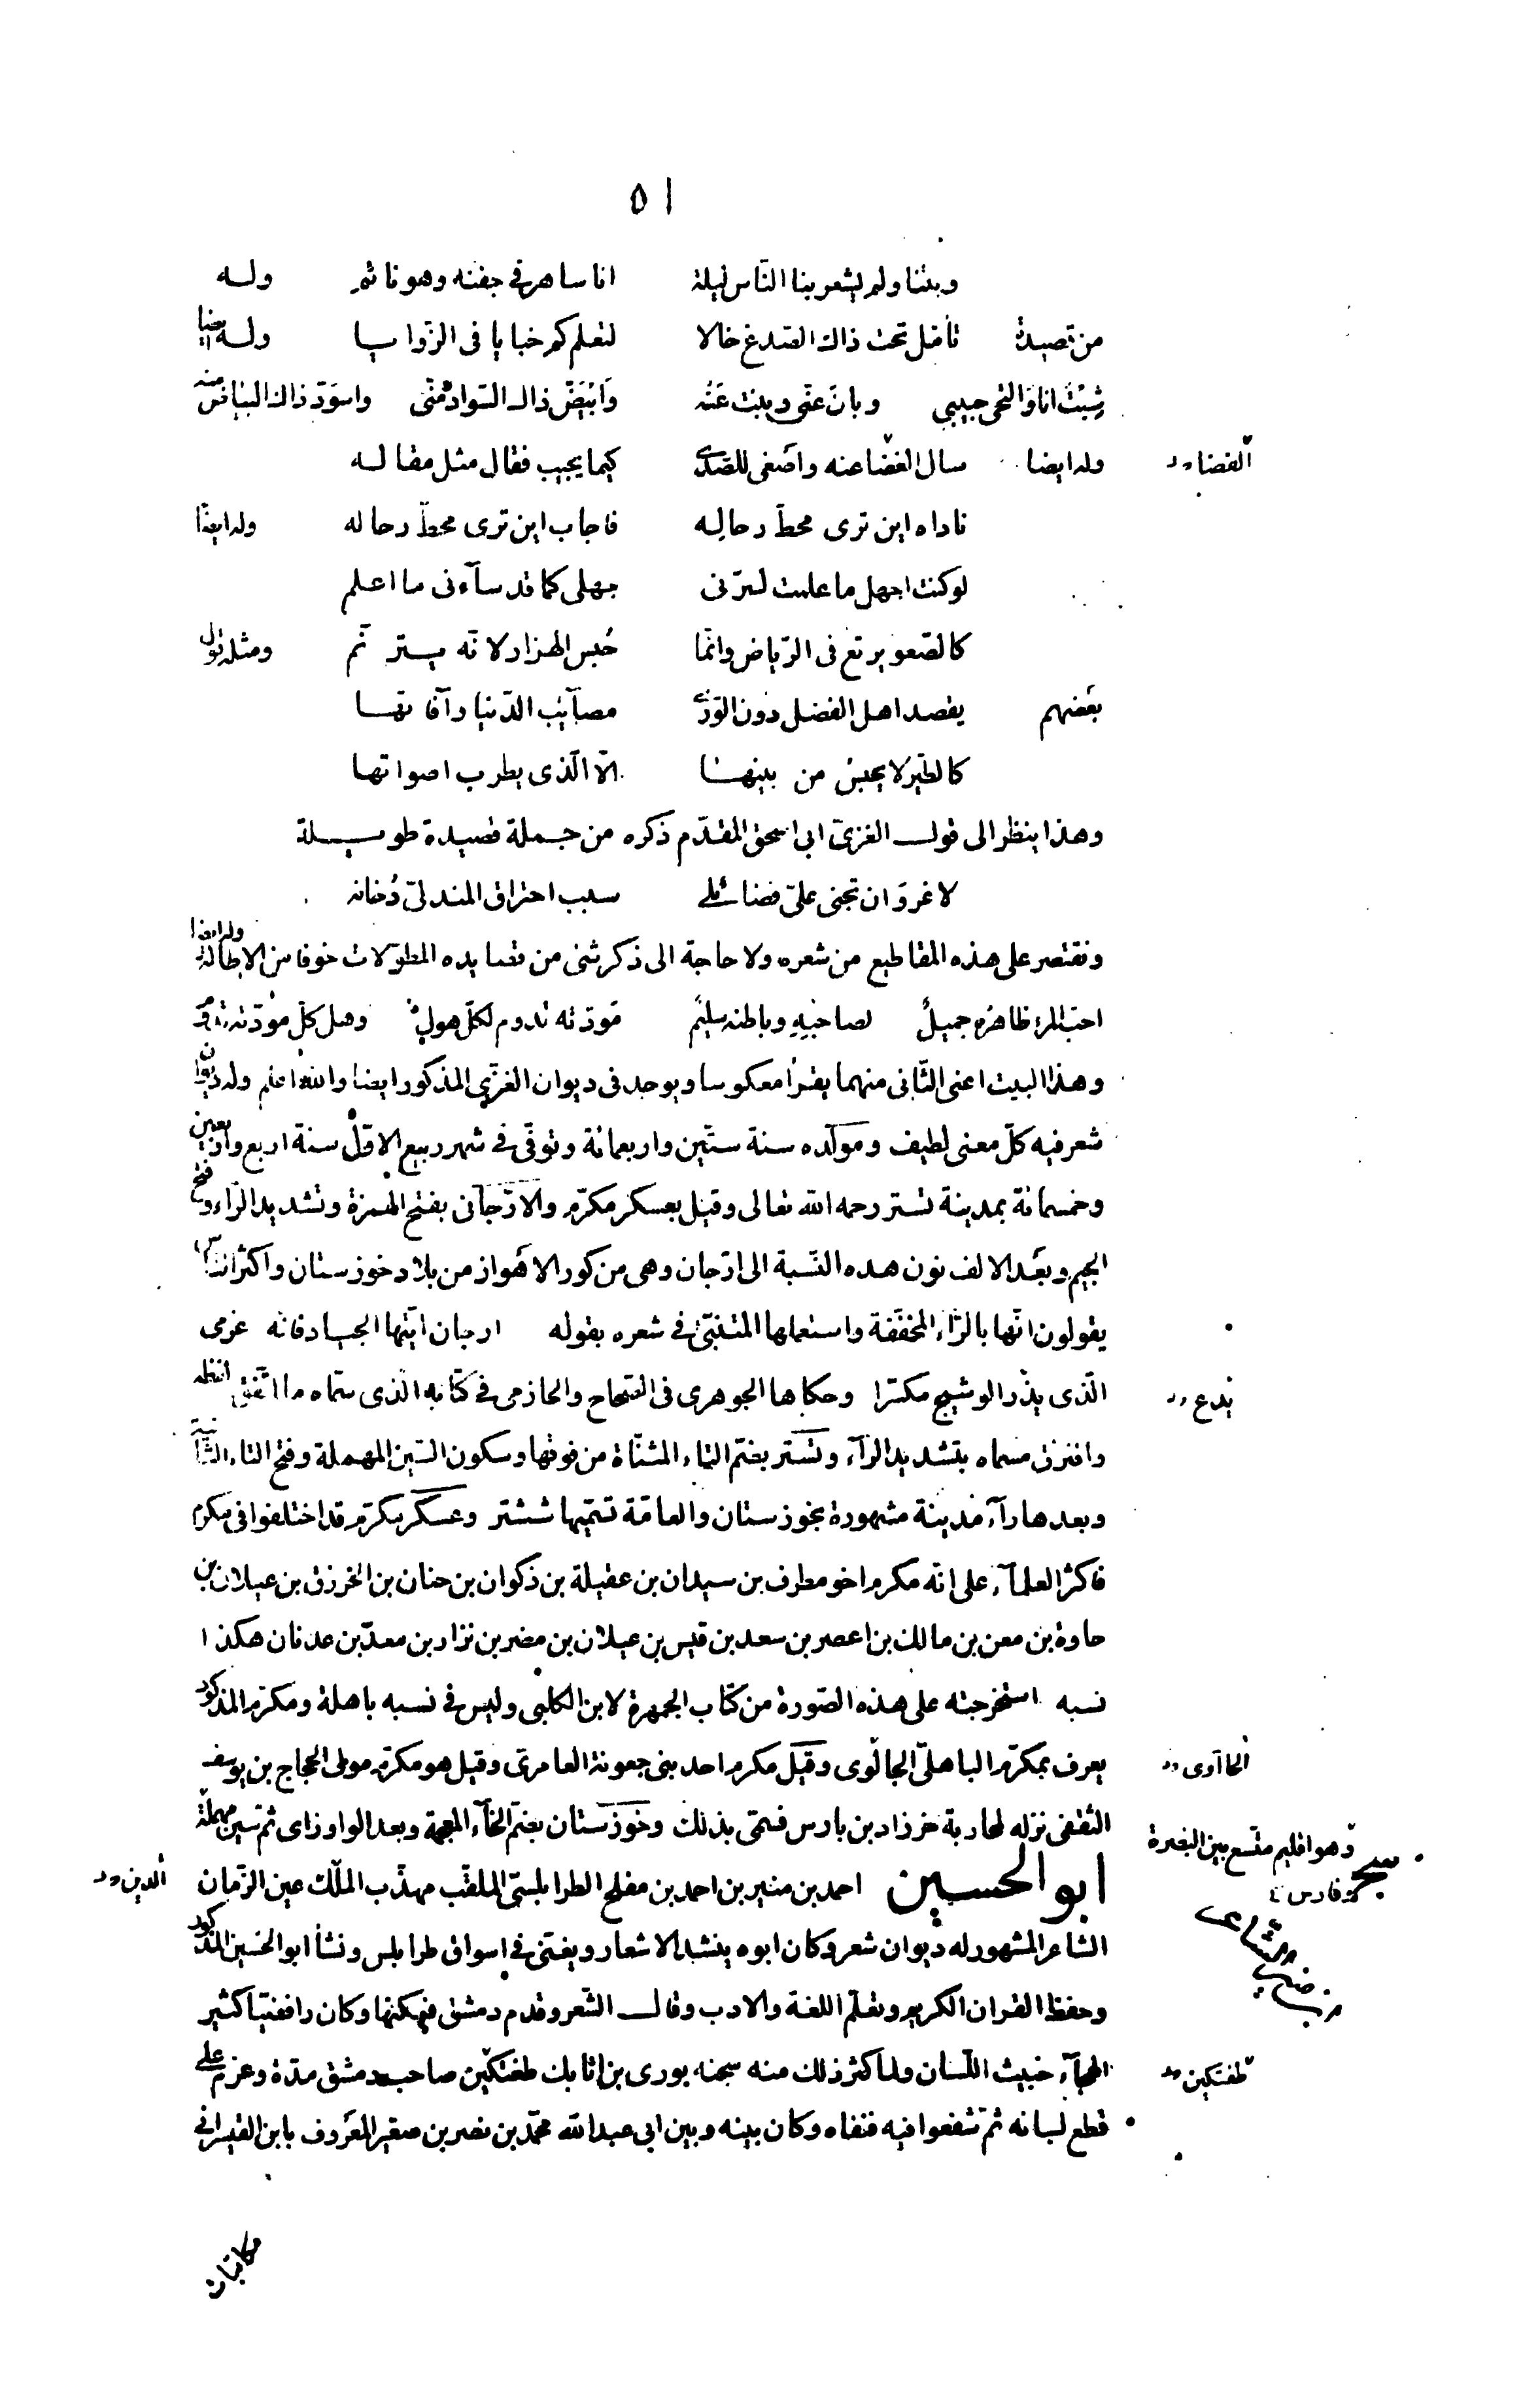 ٥١
وبتنا ولم يشعر بنا الناس ليلة انا ساهر في جفنه وهو نائم وله
من قصيدة تأمّل تحت ذاك الصدغ خالا لتعلم كم خبايا فى الزّوايا وله ايضا
شِبْتُ انا وَالتحى حبيبي وبانَ عنّى وبِنت عَنْه وَابْيَضّ ذاك السّواد منّى واسوَدّ ذاك البياض منه
وله ايضا سال الفضا عنه واصْغى للصّدى كيما يجيب فقال مثل مقاله
الفضا
ناداه اين ترى محطّ رحاله فاجاب اين ترى محطّ رحاله وله ايضا
لو كنت اجهل ما علمت لسرّنى جهلى كما قد سآءنى ما اعلم
كالصّعو يرتع فى الرّياض وانّما حُبس الهزار لانّه يترنّم ومثله قول
بعضهم يقصد اهل الفضل دون الورى مصآئب الدّنيا وآفاتها
كالطير لا يحبس من بينها الّا الّذى يطرب اصواتها
وهذا ينظر الى قول الغزىّ ابى اسحق المقدّم ذكره من جملة قصيدة طويلة
لا غروَ ان تجنى علىّ فضائلى سبب احتراق المندلىّ دُخانه
ونقتصر على هذه المقاطيع من شعره ولا حاجة الى ذكر شئ من قصايده المطوّلات خوفا من الاطالة وله ايضا
احبّ المرء ظاهره جميلٌ لصاحبِهِ وباطنه سليم مَودّته تدوم لكلّ هولٍ وهل كلّ مودّته تدوم
وهذا البيت اعنى الثّانى منهما يقرأ معكوسا ويوجد فى ديوان الغزىّ المذكور ايضا والله اعلم وله ديوان
شعر فيه كلّ معنى لطيف ومولده سنة ستّين واربعمائة وتوفّى فى شهر ربيع الاوّل سنة اربع واربعين
وخمسمائة بمدينة تستر رحمه الله تعالى وقيل بعسكر مكرّم والارّجانى بفتح الهمزة وتشديد الرّاء وفتح
الجيم وبعد الالف نون هذه النّسبة الى ارّجان وهى من كور الاهواز من بلاد خوزستان واكثر النّاس
يقولون انّها بالرّاء المخفّفة واستعملها المتنبّئ فى شعره بقوله ارجان ايّتها الجياد فانّه عزمى
الّذى يذر الوشيج مكسّرا وحكاها الجوهرى فى الصّحاح والحازمى فى كتابه الّذى سمّاه ما اتّفق لفظه
يدع
وافترق مسماه بتشديد الرّآء وتُستَر بضمّ التاء المثنّاة من فوقها وسكون السّين المهملة وفتح التاء الثّانية
وبعدها رآء مدينة مشهورة بخوزستان والعامّة تسمّيها ششتر وعسكر مكرّم قد اختلفوا فى مكرم
فاكثر العلمآء على انّه مكرم اخو مطرف بن سيدان بن عقيلة بن ذكوان بن حنان بن الخرزق بن عيلان بن
حاوة بن معن بن مالك بن اعصر بن سعد بن قيس بن عيلان بن مضر بن نزار بن معدّ بن عدنان هكذا
نسبه استخرجته على هذه الصّورة من كتاب الجمهرة لابن الكلبى وليس فى نسبه باهلة ومكرّم المذكور
يعرف بمكرّم الباهلىّ الجاآوى وقيل مكرم احد بنى جعونة العامرىّ وقيل هو مكرّم مولى الحجاج بن يوسف
الحاآوى
الثّقفى نزله لمحاربة خرزاد بن بارس فسمّى بذلك وخوزستان بضمّ الخآء المعجمة وبعد الواو زاى ثمّ سين مهملة
وهو اقليم متّسع بين البصرة
وفارس
ابو الحسين احمد بن منير بن احمد بن مفلح الطرابلسىّ الملقّب مهذّب الملك عين الزّمان
الدين
الشاعر المشهور له ديوان شعر وكان ابوه ينشد الاشعار ويغنّى فى اسواق طرابلس ونشأ ابو الحسين المذكور
وحفظ القران الكريم وتعلّم اللغة والادب وقال الشّعر وقدم دمشق فسكنها وكان رافضيّا كثير
الهجآء خبيث اللّسان ولما كثر ذلك منه سجنه بورى بن اتابك طغتكين صاحب دمشق مدّة وعزم على
طفتكين
قطع لسانه ثمّ شفعوا فيه فنفاه وكان بينه وبين ابى عبد الله محمّد بن نصر بن صغير المعروف بابن القيسرانى
مكاتبات